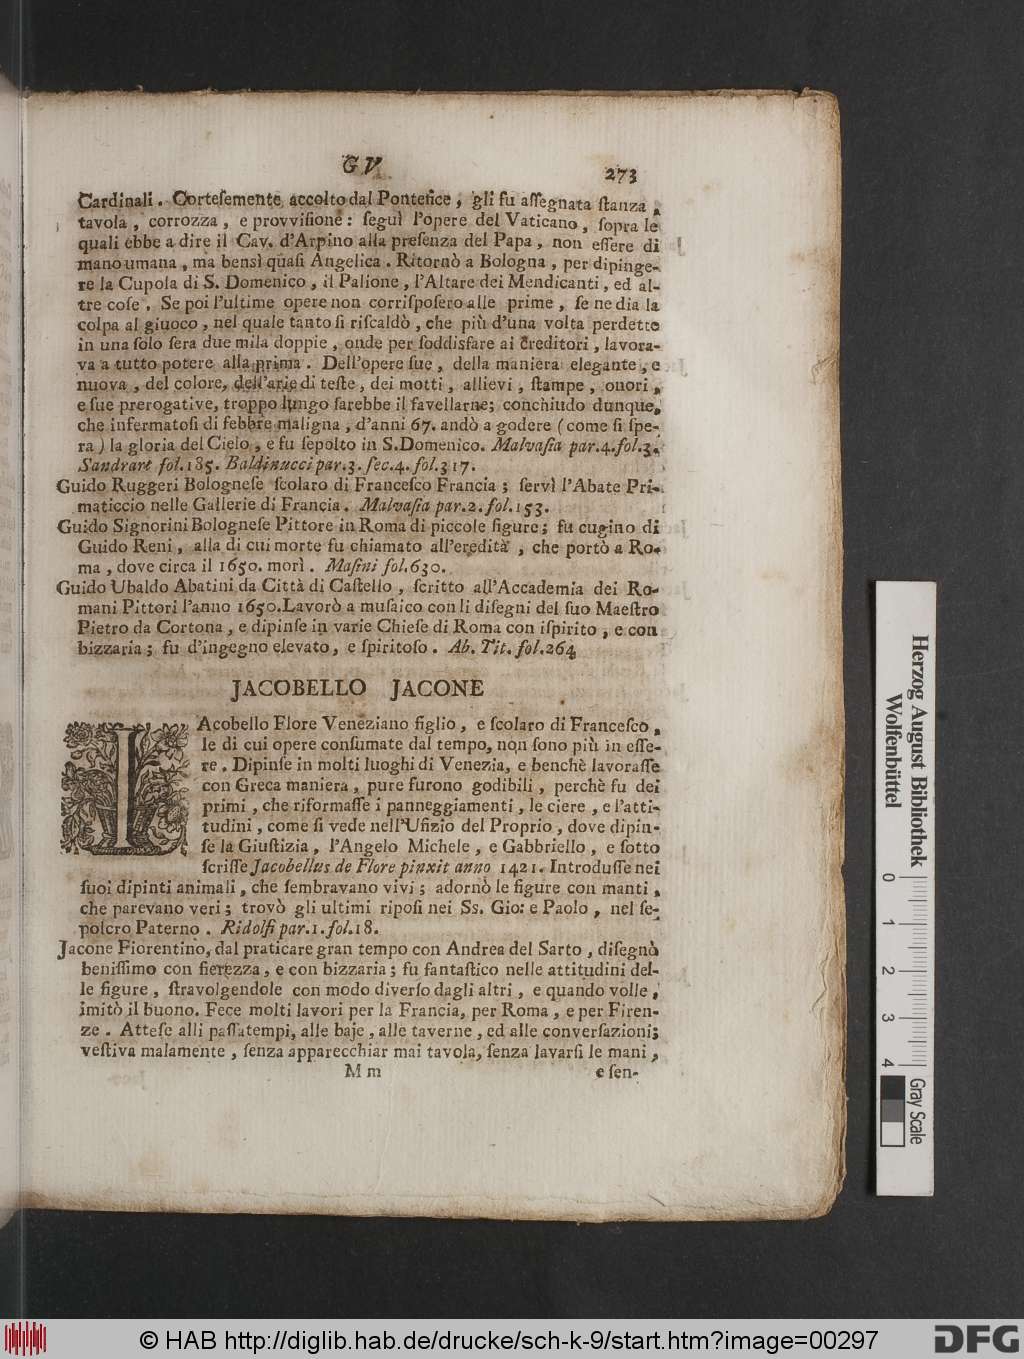 GV
273
Cardinali. Corteſemente accolto dal Pontefice, gli fu aſſegnata ſtanza,
tavola, corrozza, e provviſione: ſeguì l'opere del Vaticano, ſopra le
quali ebbe a dire il Cav. d'Arpino alla preſenza del Papa, non eſſere di
mano umana, ma bensì quaſi Angelica. Ritornò a Bologna, per dipinge-
re la Cupola di S. Domenico, il Palione, l'Altare dei Mendicanti, ed al-
tre coſe. Se poi l'ultime opere non corriſpoſero alle prime, ſe ne dia la
colpa al giuoco, nel quale tanto ſi riſcaldò, che più d'una volta perdette
in una ſolo ſera due mila doppie, onde per ſoddisfare ai Creditori, lavora-
va a tutto potere alla prima. Dell'opere ſue, della maniera elegante, e
nuova, del colore, dell'arie di teſte, dei motti, allievi, ſtampe, onori,
e ſue prerogative, troppo lungo ſarebbe il favellarne; conchiudo dunque,
che infermatoſi di febbre maligna, d'anni 67. andò a godere (come ſi ſpe-
ra) la gloria del Cielo, e fu ſepolto in S.Domenico. Malvaſia par.4.fol.3.
Sandrart fol.185. Baldinucci par.3. ſec.4. fol.317.
Guido Ruggeri Bologneſe ſcolaro di Franceſco Francia; ſervì l'Abate Pri-
maticcio nelle Gallerie di Francia. Malvaſia par.2.fol.153.
Guido Signorini Bologneſe Pittore in Roma di piccole figure; fu cugino di
Guido Reni, alla di cui morte fu chiamato all'eredità, che portò a Ro-
ma, dove circa il 1650. morì. Maſini fol.630.
Guido Ubaldo Abatini da Città di Caſtello, ſcritto all'Accademia dei Ro-
mani Pittori l'anno 1650.Lavorò a muſaico con li diſegni del ſuo Maeſtro
Pietro da Cortona, e dipinſe in varie Chieſe di Roma con iſpirito, e con
bizzaria; fu d'ingegno elevato, e ſpiritoſo. Ab. Tit. fol.264
JACOBELLO JACONE
IAcobello Flore Veneziano figlio, e ſcolaro di Franceſco,
le di cui opere conſumate dal tempo, non ſono più in eſſe-
re. Dipinſe in molti luoghi di Venezia, e benchè lavoraſſe
con Greca maniera, pure furono godibili, perchè fu dei
primi, che riformaſſe i panneggiamenti, le ciere, e l'atti-
tudini, come ſi vede nell'Ufizio del Proprio, dove dipin-
ſe la Giuſtizia, l'Angelo Michele, e Gabbriello, e ſotto
ſcriſſe Jacobellus de Flore pinxit anno 1421. Introduſſe nei
ſuoi dipinti animali, che ſembravano vivi; adornò le figure con manti,
che parevano veri; trovò gli ultimi ripoſi nei Ss. Gio: e Paolo, nel ſe-
polcro Paterno. Ridolfi par.1.fol.18.
Jacone Fiorentino, dal praticare gran tempo con Andrea del Sarto, diſegnò
beniſſimo con fierezza, e con bizzaria; fu fantaſtico nelle attitudini del-
le figure, ſtravolgendole con modo diverſo dagli altri, e quando volle,
imitò il buono. Fece molti lavori per la Francia, per Roma, e per Firen-
ze. Atteſe alli paſſatempi, alle baje, alle taverne, ed alle converſazioni;
veſtiva malamente, ſenza apparecchiar mai tavola, ſenza lavarſi le mani,
M m
e ſen-
Herzog August Bibliothek
Wolfenbüttel
0
1
2
3
4
Gray Scale
© HAB http://diglib.hab.de/drucke/sch-k-9/start.htm?image=00297
DFG